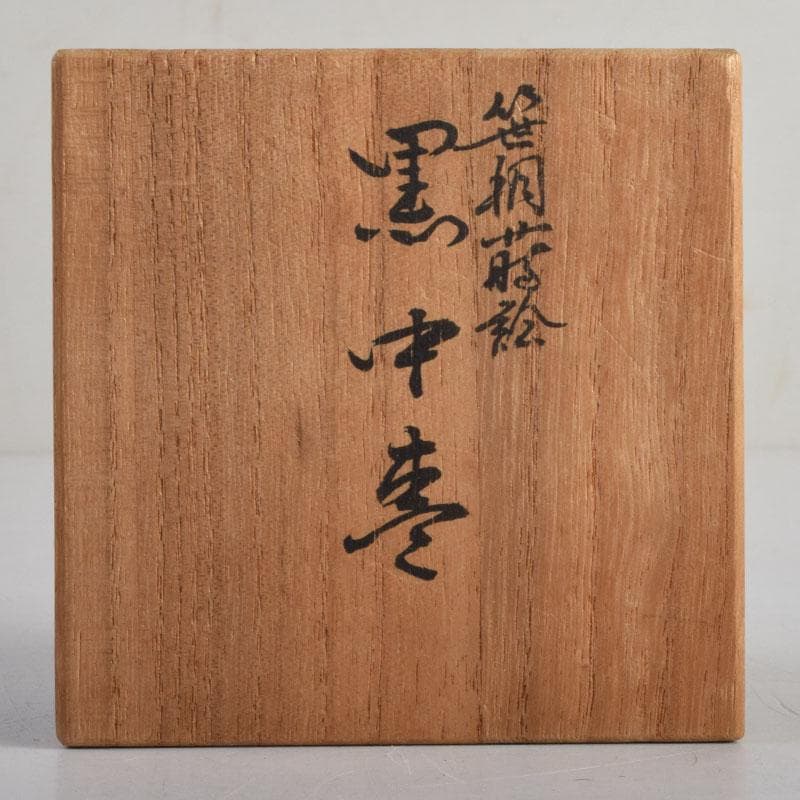 笹桐蒔絵
黒中棗